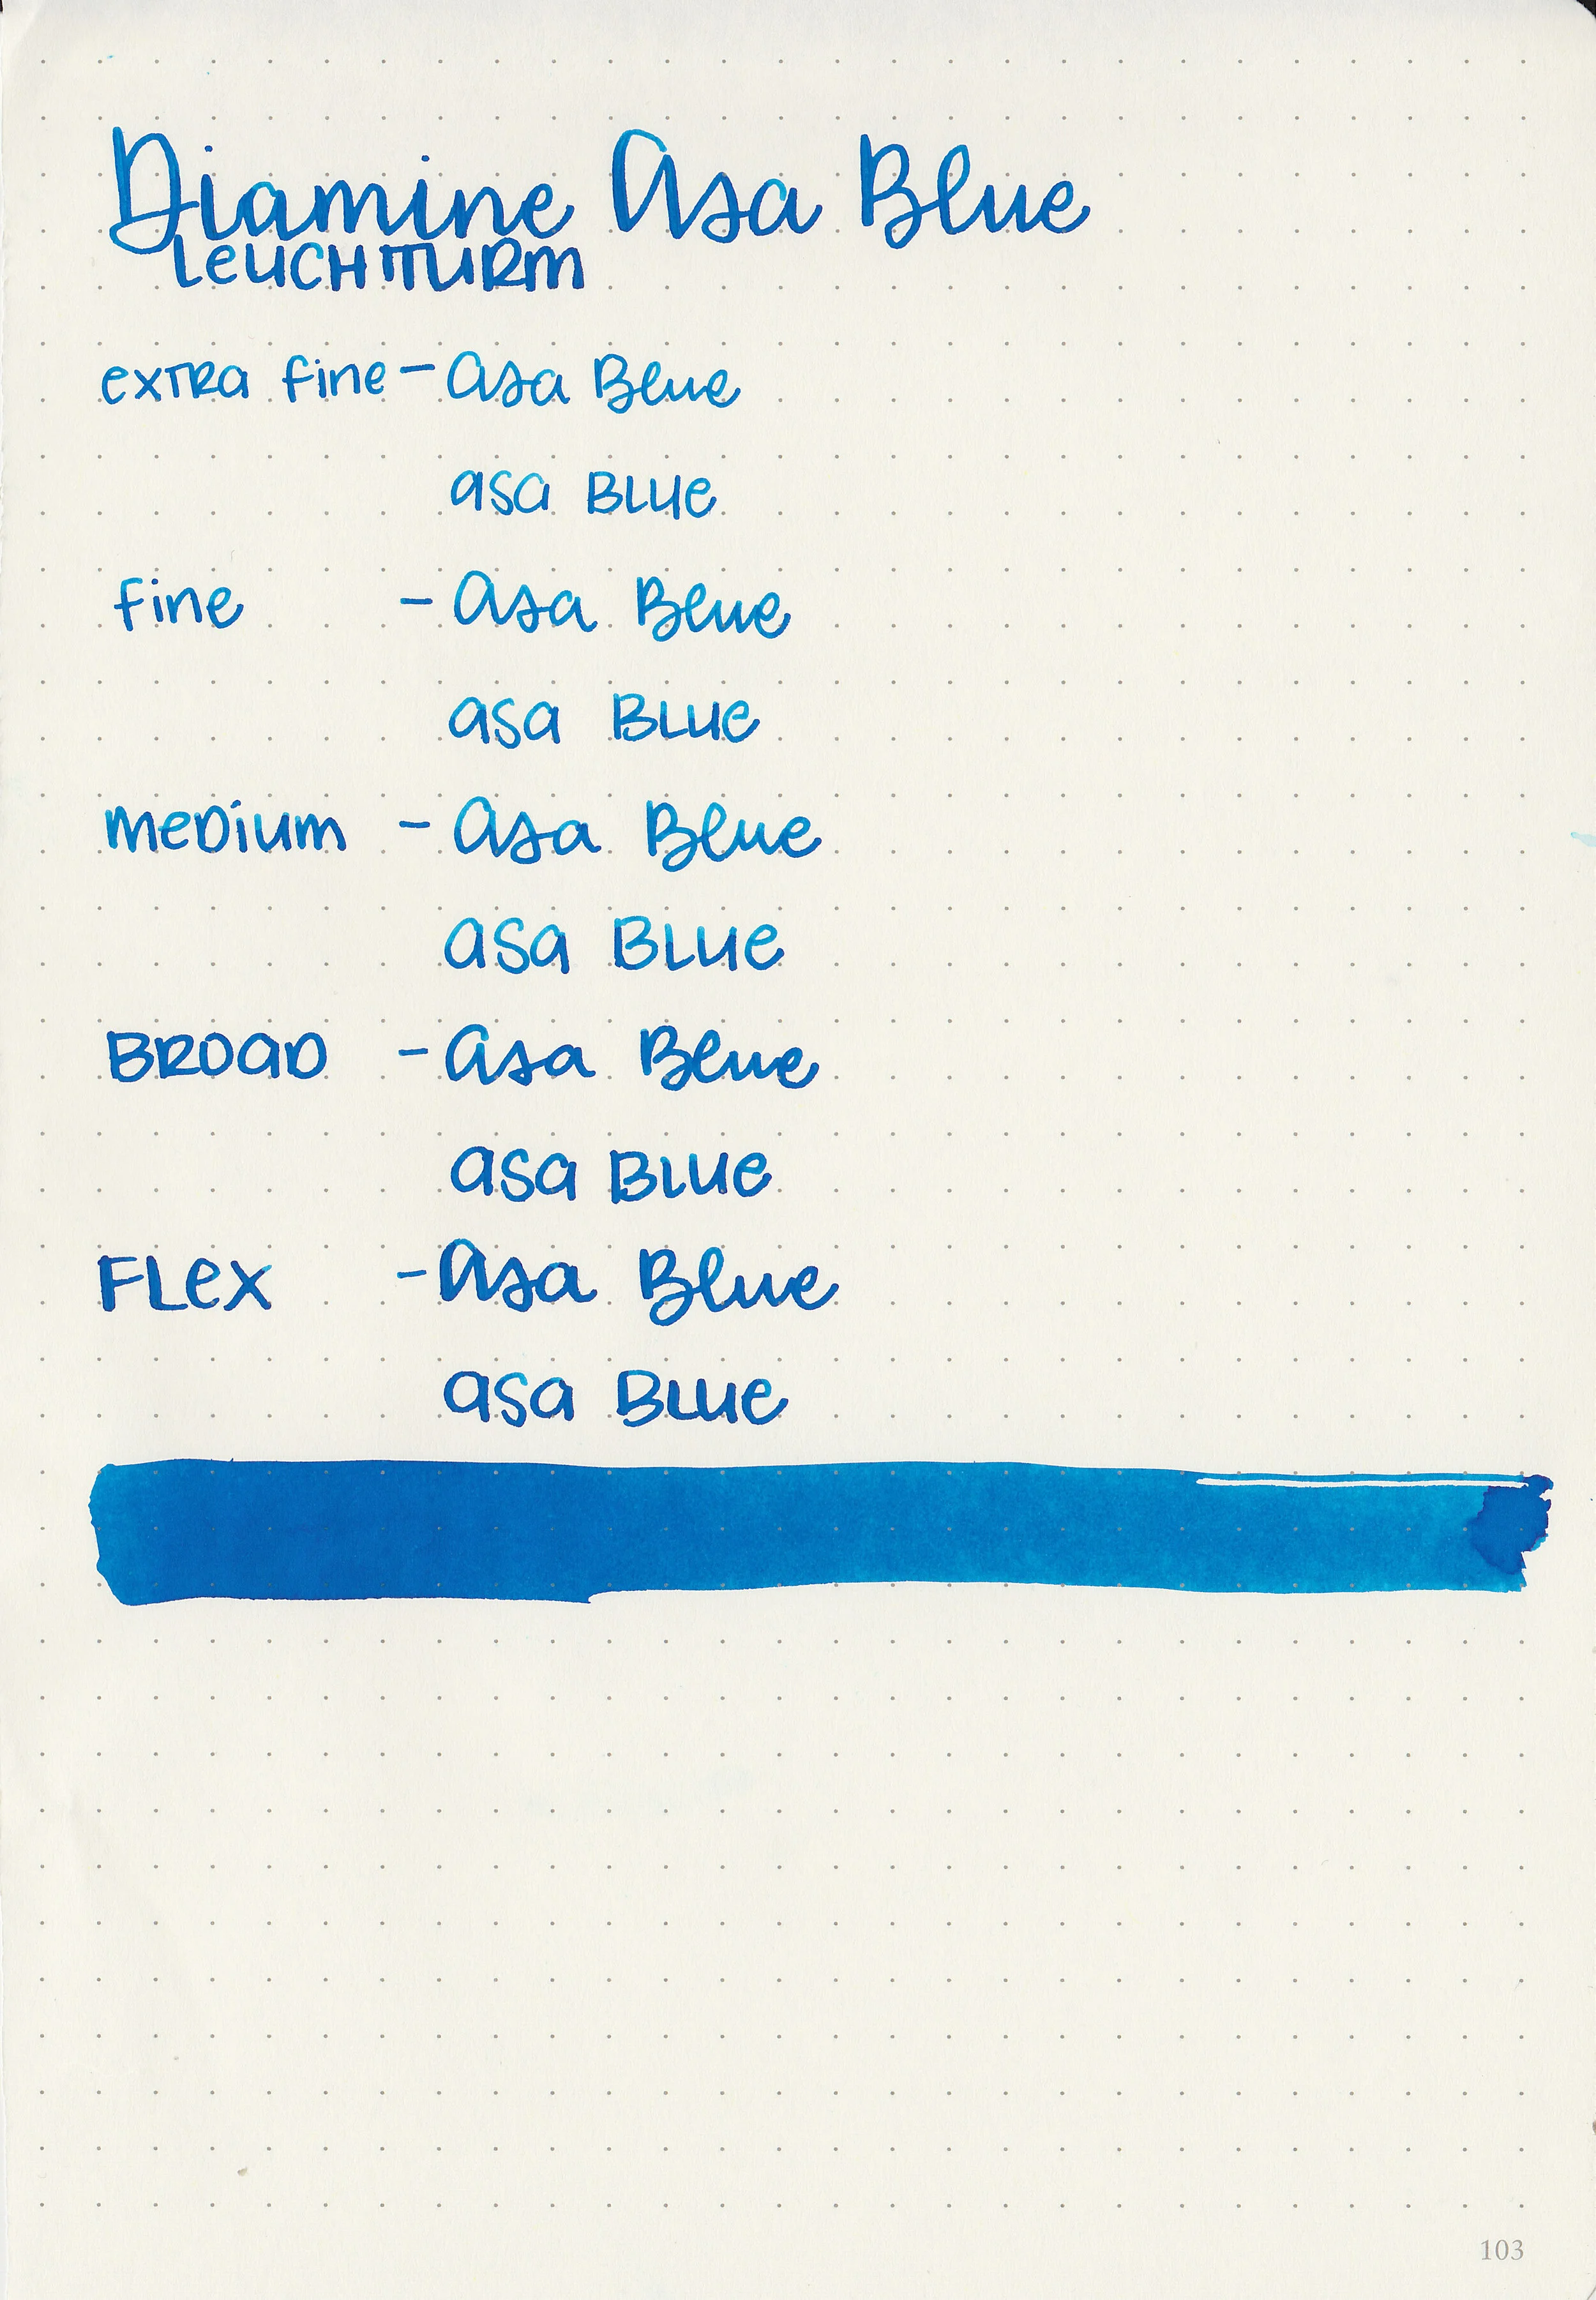 Diamine Asa Blue
Leuchtturm
extra fine - Asa Blue
asa Blue
fine - Asa Blue
asa Blue
medium - Asa Blue
asa Blue
Broad - Asa Blue
asa Blue
Flex - Asa Blue
asa Blue
103